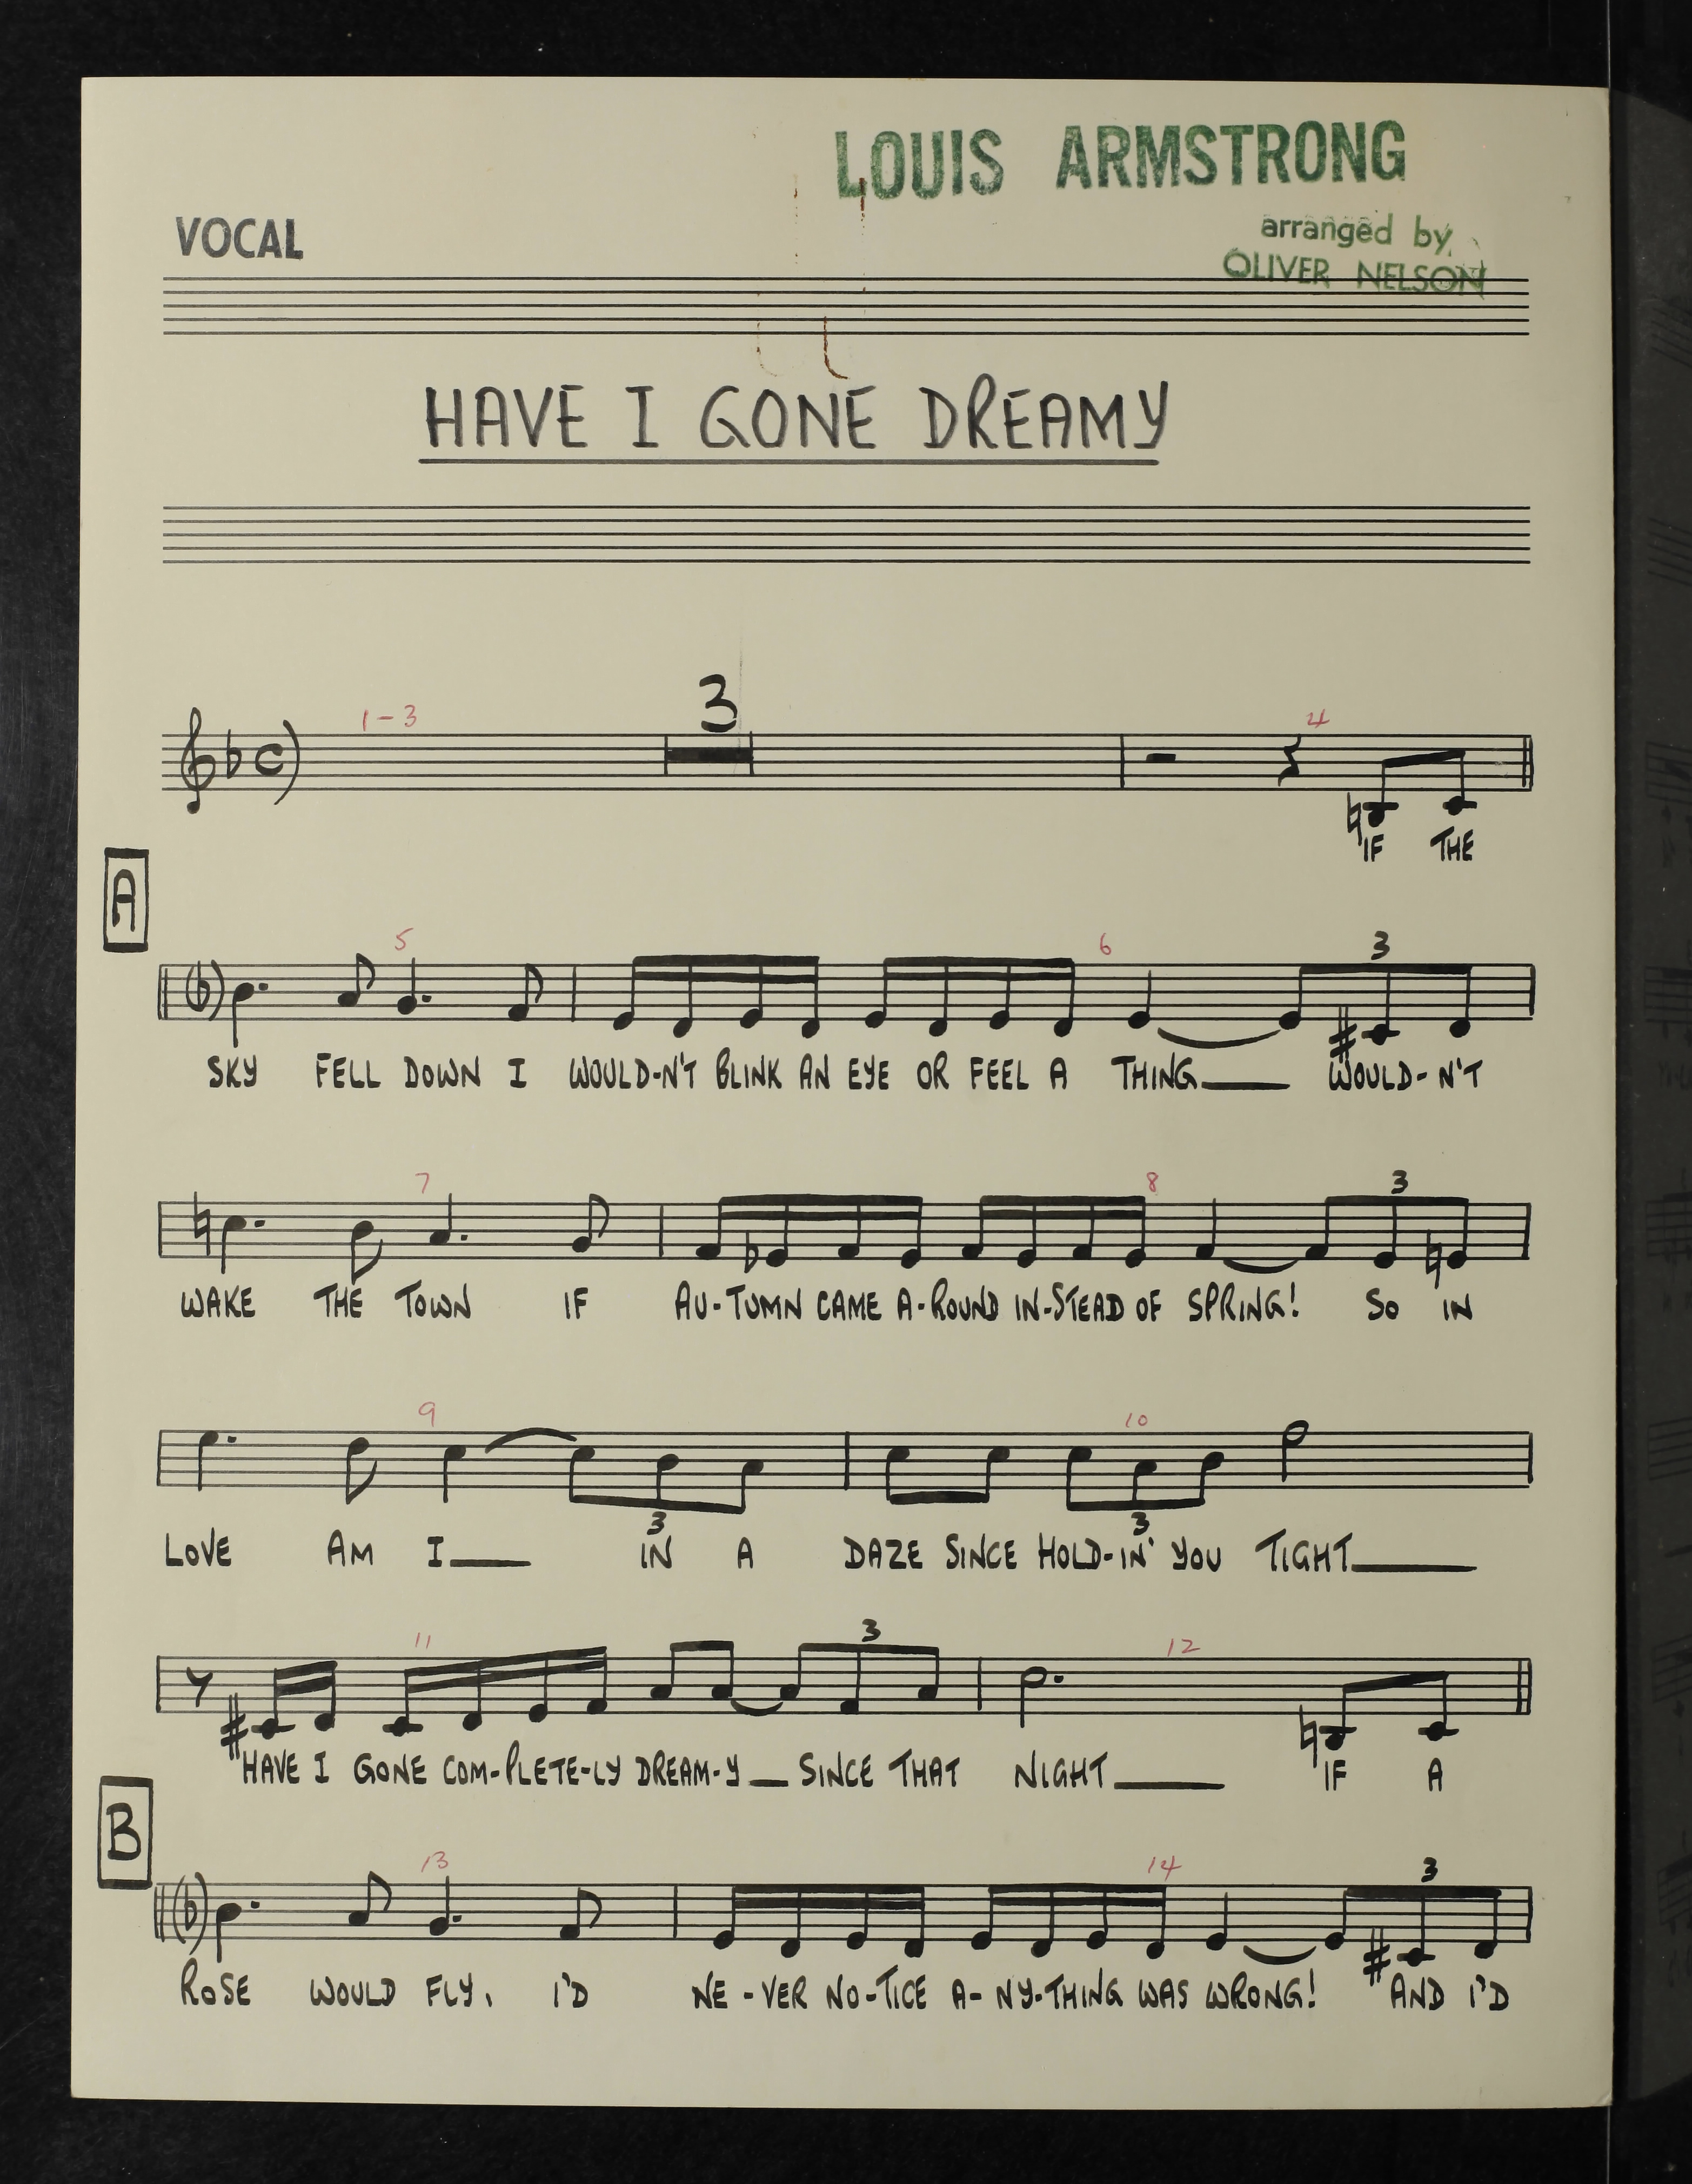 LOUIS ARMSTRONG
VOCAL
arranged by
OLIVER NELSON
HAVE I GONE DREAMY
3
1-3 4
IF THE
A
5 6 3
SKY FELL DOWN I WOULD-N'T BLINK AN EYE OR FEEL A THING WOULD-N'T
7 8 3
WAKE THE TOWN IF AU-TUMN CAME A-ROUND IN-STEAD OF SPRING! SO IN
9 10
3 3
LOVE AM I IN A DAZE SINCE HOLD-IN' YOU TIGHT
11 3 12
HAVE I GONE COM-PLETE-LY DREAM-Y SINCE THAT NIGHT IF A
B
13 14 3
ROSE WOULD FLY, I'D NE-VER NO-TICE A-NY-THING WAS WRONG! AND I'D